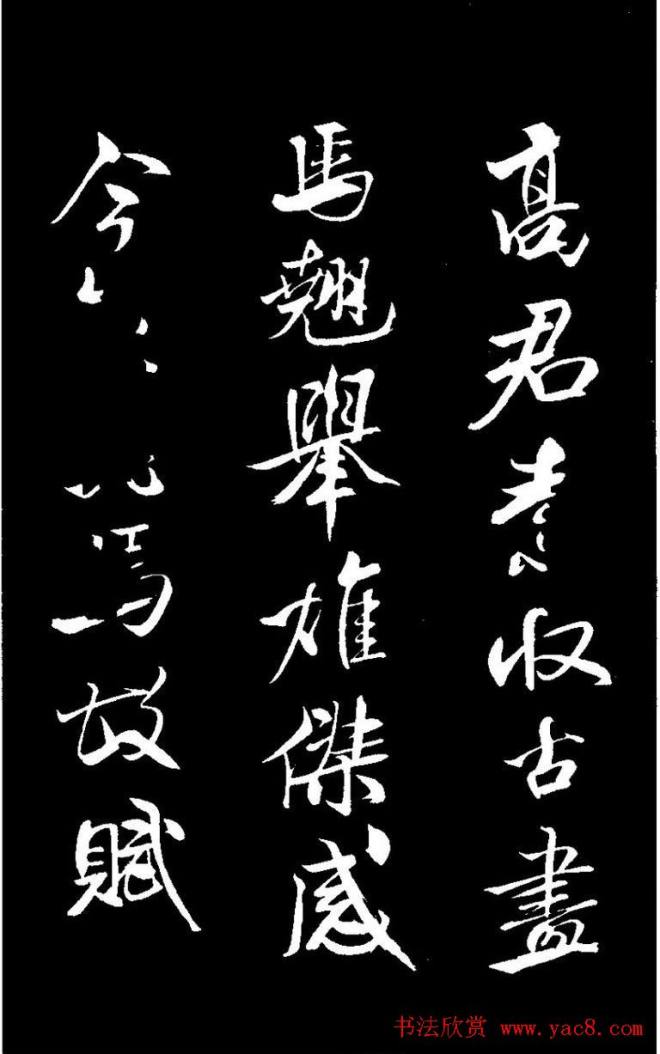 高君素收古畫
馬翹舉雄傑感
今馬故賦
书法欣赏 www.yac8.com